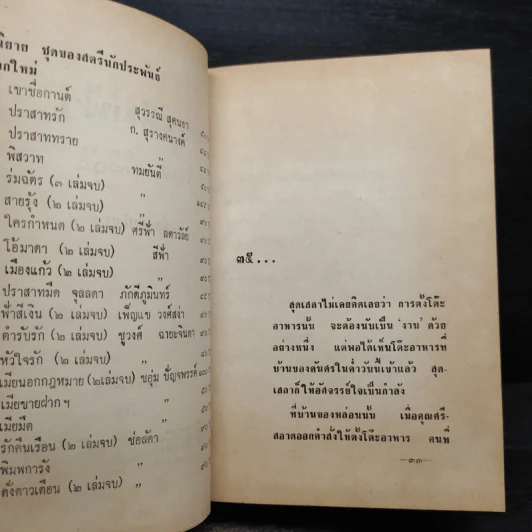 นิยาย ชุดของสตรีนักประพันธ์
เขาชื่อกานต์ สุวรรณี สุคนธา
ปราสาทรัก ก. สุรางคนางค์
ปราสาททราย "
พิสวาท ทมยันตี
ร่มฉัตร (๓ เล่มจบ) "
สายรุ้ง (๒ เล่มจบ) "
ใครกำหนด (๒ เล่มจบ) ศรีฟ้า ลดาวัลย์
โอ้มาดา (๒ เล่มจบ) สีฟ้า
เมืองแก้ว (๒ เล่มจบ) "
ปราสาทมืด จุลลดา ภักดีภูมินทร์
ฟ้าสีเงิน (๒ เล่มจบ) เพ็ญแข วงศ์สง่า
ตำรับรัก (๒ เล่มจบ) ชูวงศ์ ฉายะจินดา
หัวใจรัก (๒ เล่มจบ) "
เมียนอกกฎหมาย (๒เล่มจบ) ชอุ่ม ปัญจพรรค์
เมียขายฝาก ฯ "
เมียมืด "
รักคืนเรือน (๒ เล่มจบ) ช่อลัดา
พิมพการัง "
ดั่งดาวเตือน (๒ เล่มจบ) "
๓๕...
สุดเสลาไม่เคยคิดเลยว่า การตั้งโต๊ะ
อาหารนั้น จะต้องนับเป็น 'งาน' ด้วย
อย่างหนึ่ง แต่พอได้เห็นโต๊ะอาหารที่
บ้านของคันศรในค่ำวันนี้เข้าแล้ว สุด-
เสลาก็ให้อัศจรรย์ใจเป็นกำลัง
ที่บ้านของหล่อนนั้น เมื่อคุณศรี-
สอาดออกคำสั่งให้ตั้งโต๊ะอาหาร คนที่
—๓๓—